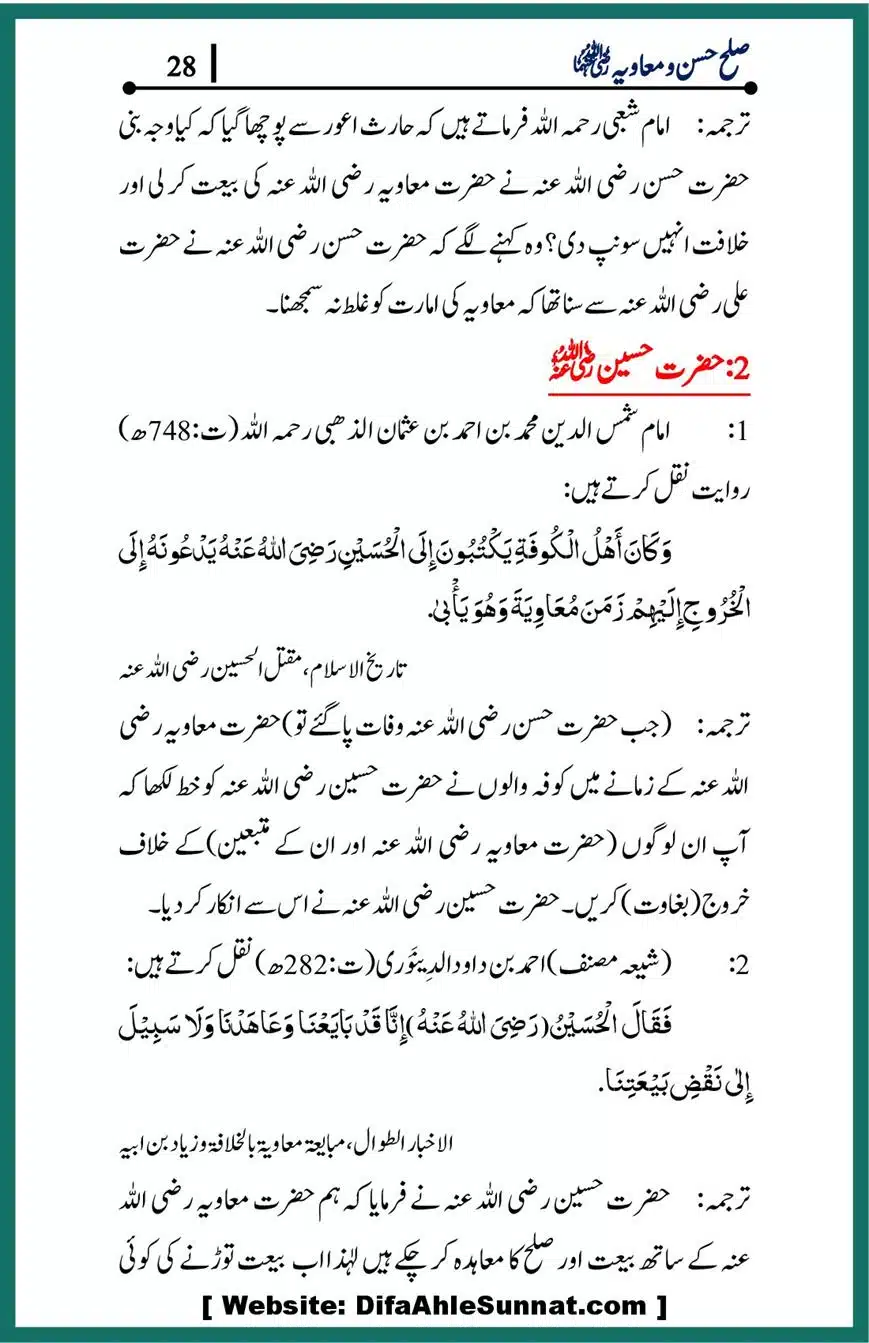 صلح حسن و معاویہ رضی اللہ عنہما 28
ترجمہ: امام شعبی رحمہ اللہ فرماتے ہیں کہ حارث اعور سے پوچھا گیا کہ کیا وجہ بنی
حضرت حسن رضی اللہ عنہ نے حضرت معاویہ رضی اللہ عنہ کی بیعت کر لی اور
خلافت انہیں سونپ دی؟ وہ کہنے لگے کہ حضرت حسن رضی اللہ عنہ نے حضرت
علی رضی اللہ عنہ سے سنا تھا کہ معاویہ کی امارت کو غلط نہ سمجھنا۔
2: حضرت حسین رضی اللہ عنہ
1: امام شمس الدین محمد بن احمد بن عثمان الذھبی رحمہ اللہ (ت:748ھ)
روایت نقل کرتے ہیں:
وَكَانَ أَهْلُ الْكُوفَةِ يَكْتُبُونَ إِلَى الْحُسَيْنِ رَضِيَ اللهُ عَنْهُ يَدْعُونَهُ إِلَى
الْخُرُوجِ إِلَيْهِمْ زَمَنَ مُعَاوِيَةَ وَهُوَ يَأْبىٰ.
تاریخ الاسلام، مقتل الحسین رضی اللہ عنہ
ترجمہ: (جب حضرت حسن رضی اللہ عنہ وفات پا گئے تو) حضرت معاویہ رضی
اللہ عنہ کے زمانے میں کوفہ والوں نے حضرت حسین رضی اللہ عنہ کو خط لکھا کہ
آپ ان لوگوں (حضرت معاویہ رضی اللہ عنہ اور ان کے متبعین) کے خلاف
خروج (بغاوت) کریں۔ حضرت حسین رضی اللہ عنہ نے اس سے انکار کر دیا۔
2: (شیعہ مصنف) احمد بن داود الدِینَوری (ت:282ھ) نقل کرتے ہیں:
فَقَالَ الْحُسَيْنُ (رَضِيَ اللهُ عَنْهُ) إِنَّا قَدْ بَايَعْنَا وَعَاهَدْنَا وَلَا سَبِيْلَ
إِلىٰ نَقْضِ بَيْعَتِنَا.
الاخبار الطوال، مبایعۃ معاویۃ بالخلافۃ وزیاد بن ابیہ
ترجمہ: حضرت حسین رضی اللہ عنہ نے فرمایا کہ ہم حضرت معاویہ رضی اللہ
عنہ کے ساتھ بیعت اور صلح کا معاہدہ کر چکے ہیں لہٰذا اب بیعت توڑنے کی کوئی
[ Website: DifaAhleSunnat.com ]